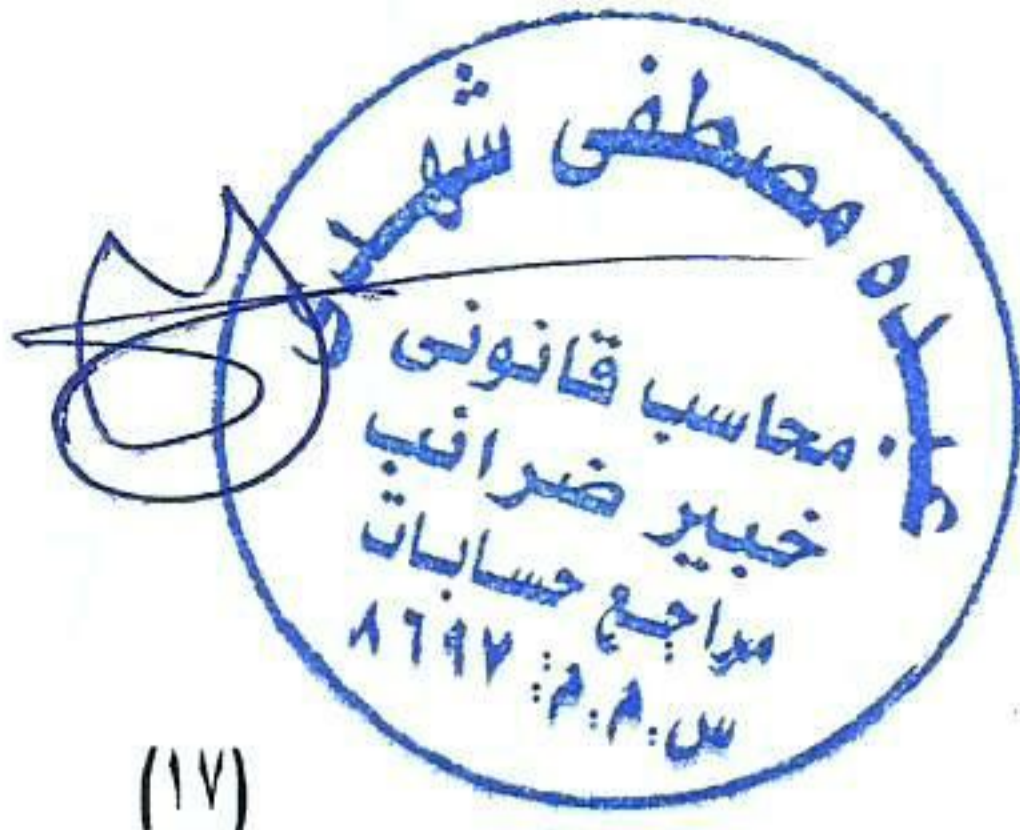 عبده مصطفى شهدى
محاسب قانونى
خبير ضرائب
مراجع حسابات
س.م.م: ٨٦٩٧
(١٧)